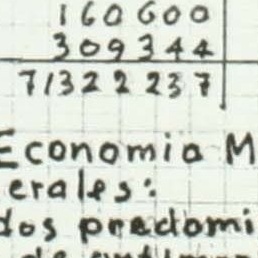 160600
309344
71322237
Economia M
erales:
dos predomi